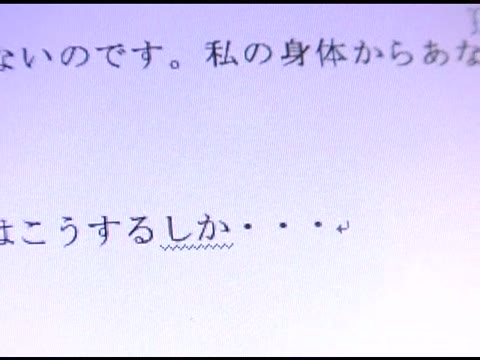 ないのです。私の身体からあな
はこうするしか・・・↵